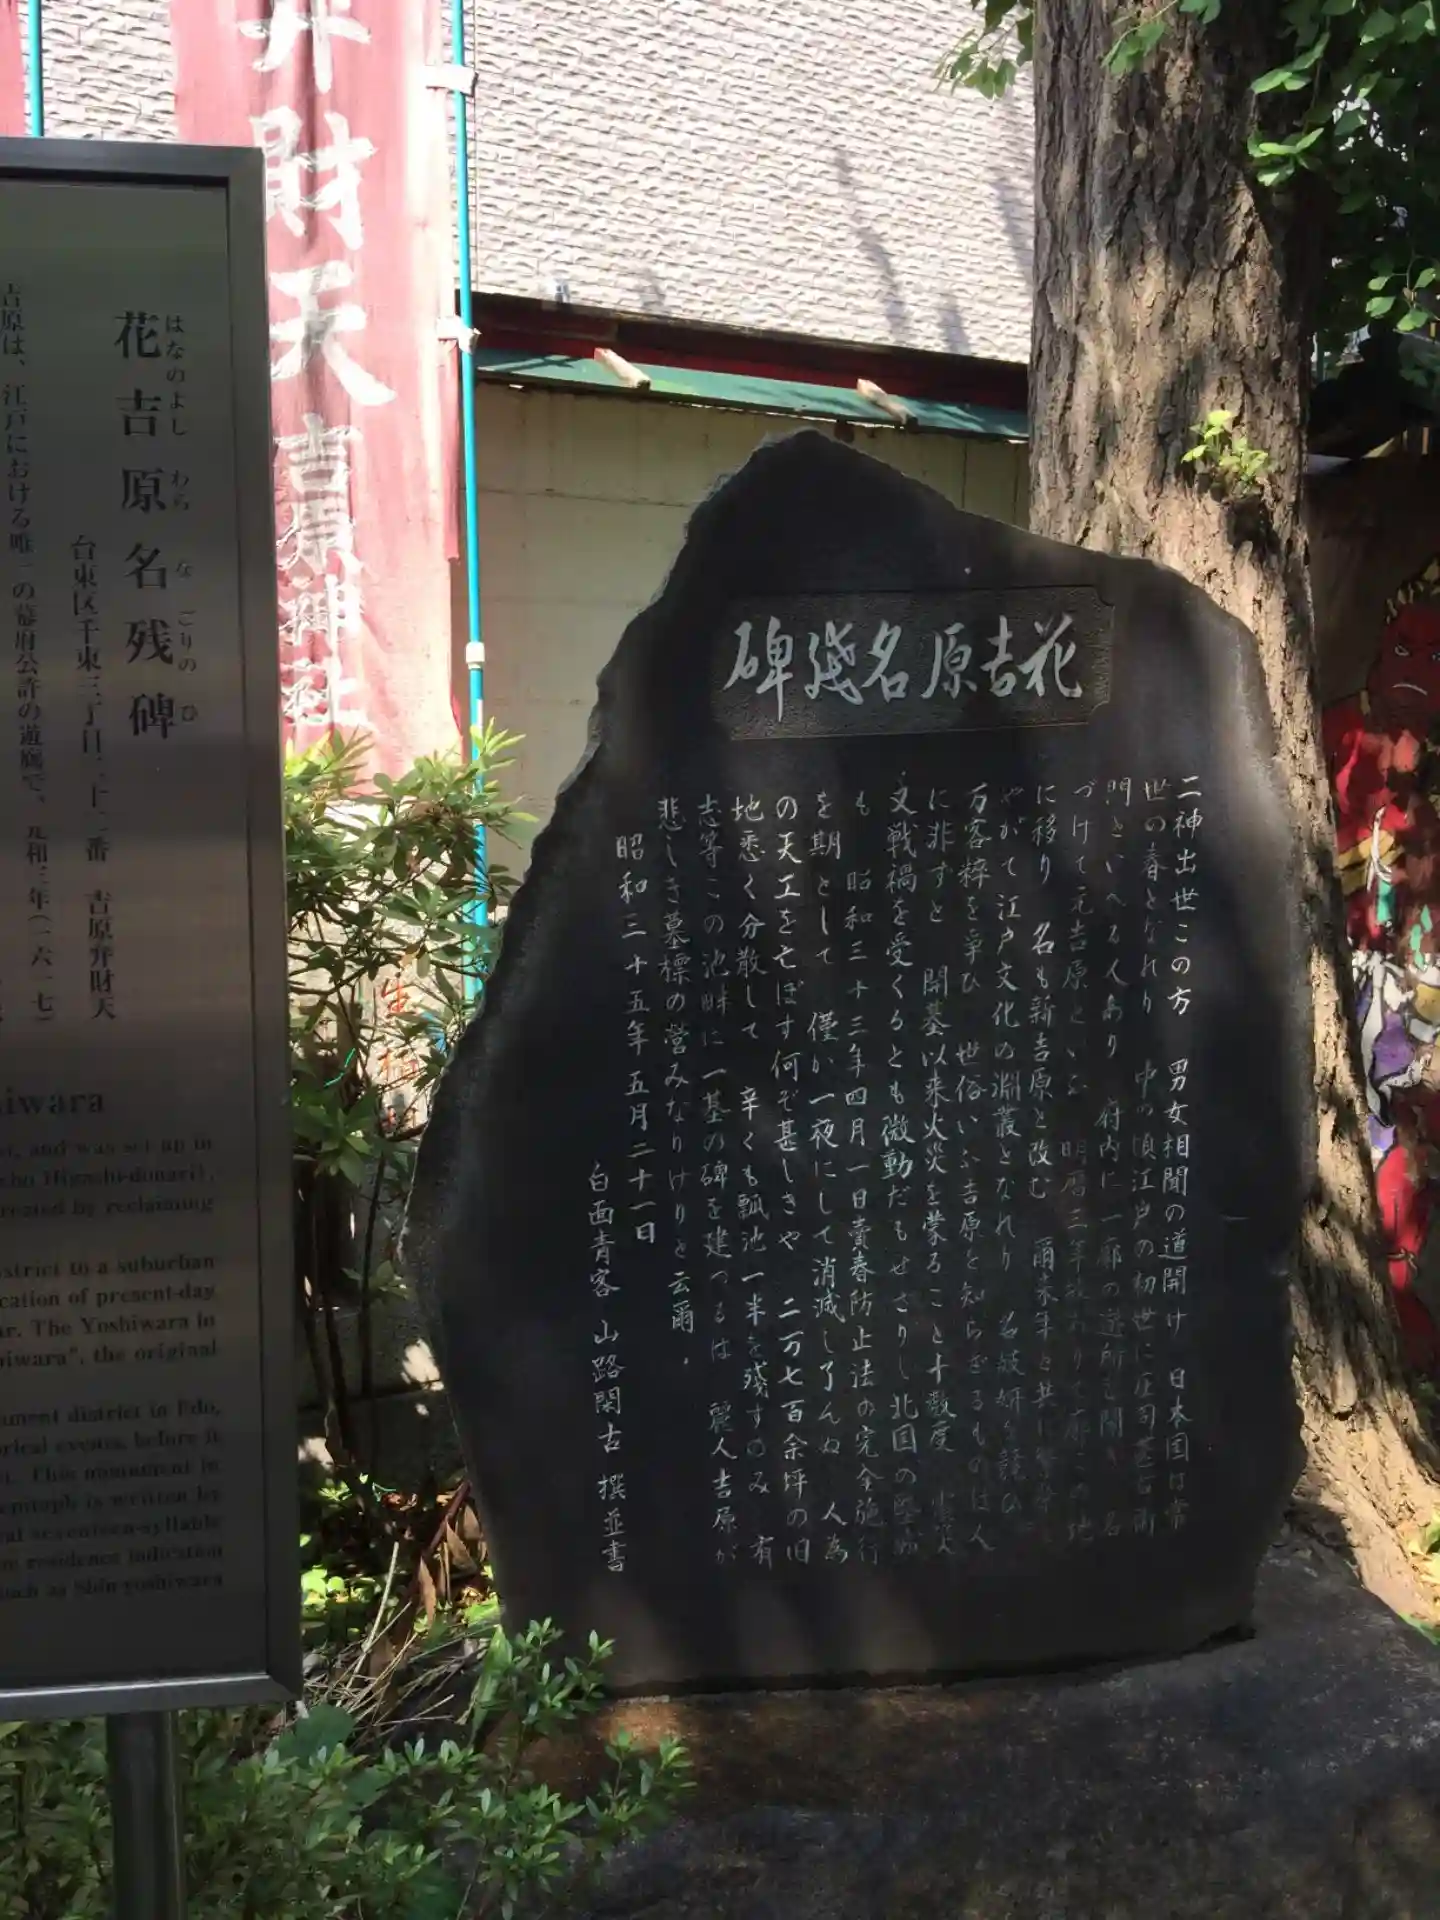 弁財天 吉原神社
花吉原名残碑
はなのよしわらなごりのひ
台東区千束三丁目二十二番 吉原弁財天
吉原は、江戸における唯一の幕府公許の遊廓で、元和三年(一六一七)
iwara
st, and was set up in
cho Higashi-dounari),
created by reclaiming
strict to a suburban
cation of present-day
ar. The Yoshiwara in
hiwara", the original
ment district in Edo,
orical events, before it
t. This monument in
epitaph is written by
al seventeen-syllable
residence indication
such as Shin-yoshiwara
花吉原名残碑
二神出世この方 男女相聞の道開け 日本国は常
世の春となれり 中の頃江戸の初世に庄司甚右衛
門といへる人あり 府内に一廓の遊所を開き 名
づけて元吉原といふ 明暦三年
に移り 名も新吉原と改む 爾来年と共に
やがて江戸文化の淵叢となれり 名妓妍を競ひ
万客粋を争ひ 世俗いふ吉原を知らざるものは人
に非ずと 開基以来火災を蒙ること十数度 震災
又戦禍を受くるとも微動だもせざりし北国の堅城
も 昭和三十三年四月一日賣春防止法の完全施行
を期として 僅か一夜にして消滅し了んぬ 人為
の天工を亡ぼす何ぞ甚しきや 二万七百余坪の旧
地悉く分散して 辛くも瓢池一半を残すのみ 有
志等この池畔に一基の碑を建つるは 麗人吉原が
悲しき墓標の営みなりけりと云爾。
昭和三十五年五月二十一日
白面青客 山路閑古 撰並書